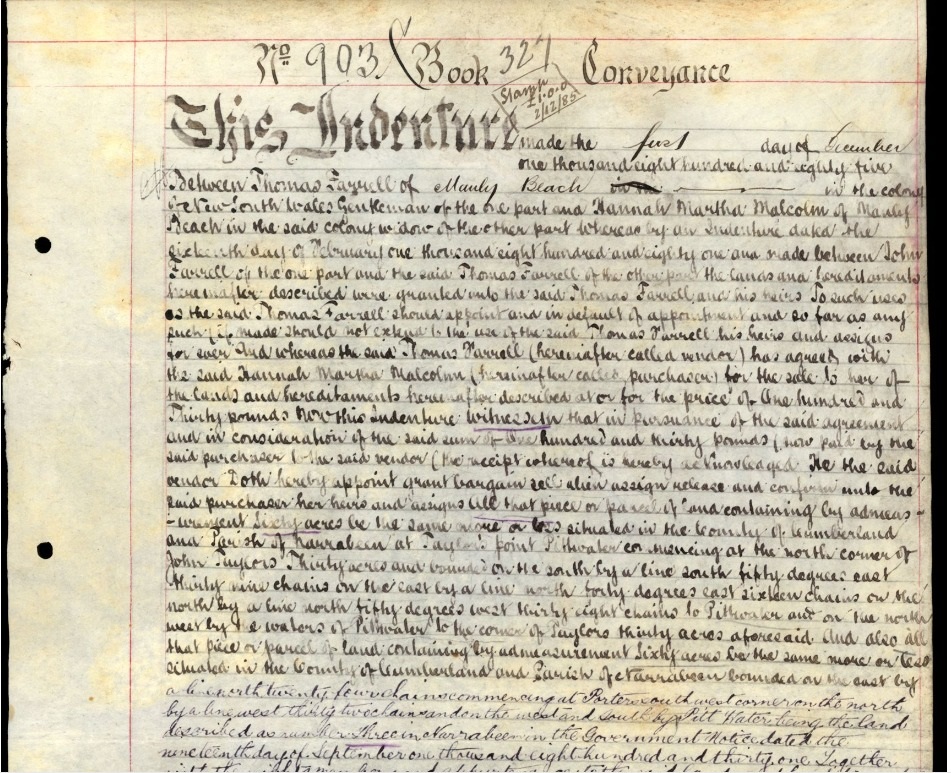 No 903 Book 327 Conveyance
Stamp
£1.0.0
2/12/85
This Indenture made the first day of December
one thousand eight hundred and eighty five
Between Thomas Farrell of Manly Beach in the colony
of New South Wales Gentleman of the one part and Hannah Martha Malcolm of Manly
Beach in the said colony widow of the other part whereas by an Indenture dated the
day of February one thousand eight hundred and eighty one and made between John
Farrell of the one part and the said Thomas Farrell of the other part the lands and hereditaments
hereinafter described were granted unto the said Thomas Farrell and his heirs To such uses
as the said Thomas Farrell should appoint and in default of appointment and so far as any
such if made should not extend to the use of the said Thomas Farrell his heirs and assigns
for ever And whereas the said Thomas Farrell (hereinafter called vendor) has agreed with
the said Hannah Martha Malcolm (hereinafter called purchaser) for the sale to her of
the lands and hereditaments hereinafter described at or for the price of One hundred and
Thirty pounds Now this Indenture witnesseth that in pursuance of the said agreement
and in consideration of the said sum of One hundred and thirty pounds (now paid by the
said purchaser to the said vendor (the receipt whereof is hereby acknowledged He the said
vendor Doth hereby appoint grant bargain sell alien assign release and confirm unto the
said purchaser her heirs and assigns All that piece or parcel of land containing by admeas-
-urement Sixty acres be the same more or less situated in the County of Cumberland
and Parish of Narrabeen at Taylors point Pittwater commencing at the north corner of
John Taylors Thirty acres and bounded on the south by a line south fifty degrees east
thirty nine chains on the east by a line north forty degrees east sixteen chains on the
north by a line north fifty degrees west thirty eight chains to Pittwater and on the north
west by the waters of Pittwater to the corner of Taylors thirty acres aforesaid And also all
that piece or parcel of land containing by admeasurement Sixty acres be the same more or less
situated in the County of Cumberland and Parish of Narrabeen bounded on the east by
a line north twenty four chains commencing at Porters south west corner on the north
by a line west thirty two chains and on the west and south by Pitt Water being the land
described as number Three in Narrabeen in the Government Notice dated the
nineteenth day of September one thousand and eight hundred and thirty one Together